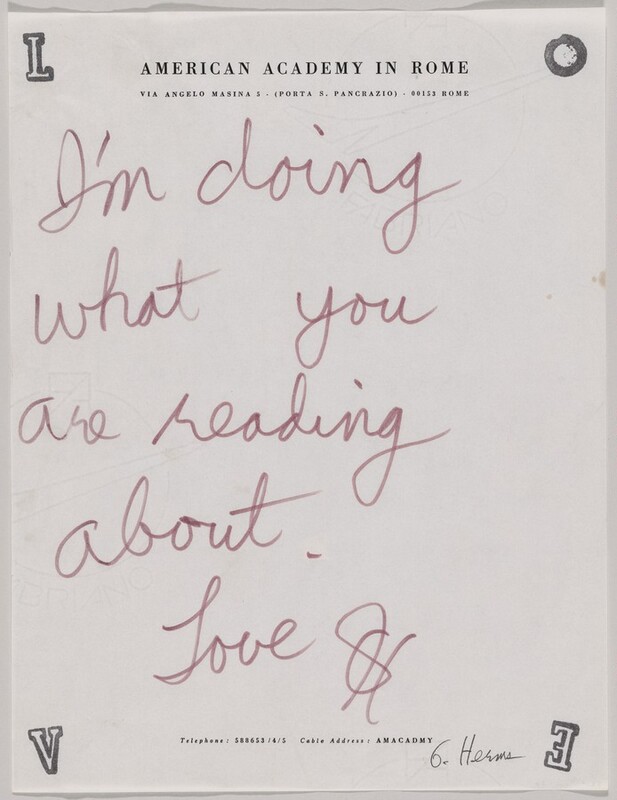 L O
AMERICAN ACADEMY IN ROME
VIA ANGELO MASINA 5 - (PORTA S. PANCRAZIO) - 00153 ROME
I'm doing
what you
are reading
about.
Love GH
Telephone: 588653/4/5 Cable Address: AMACADMY
G. Herms
V E